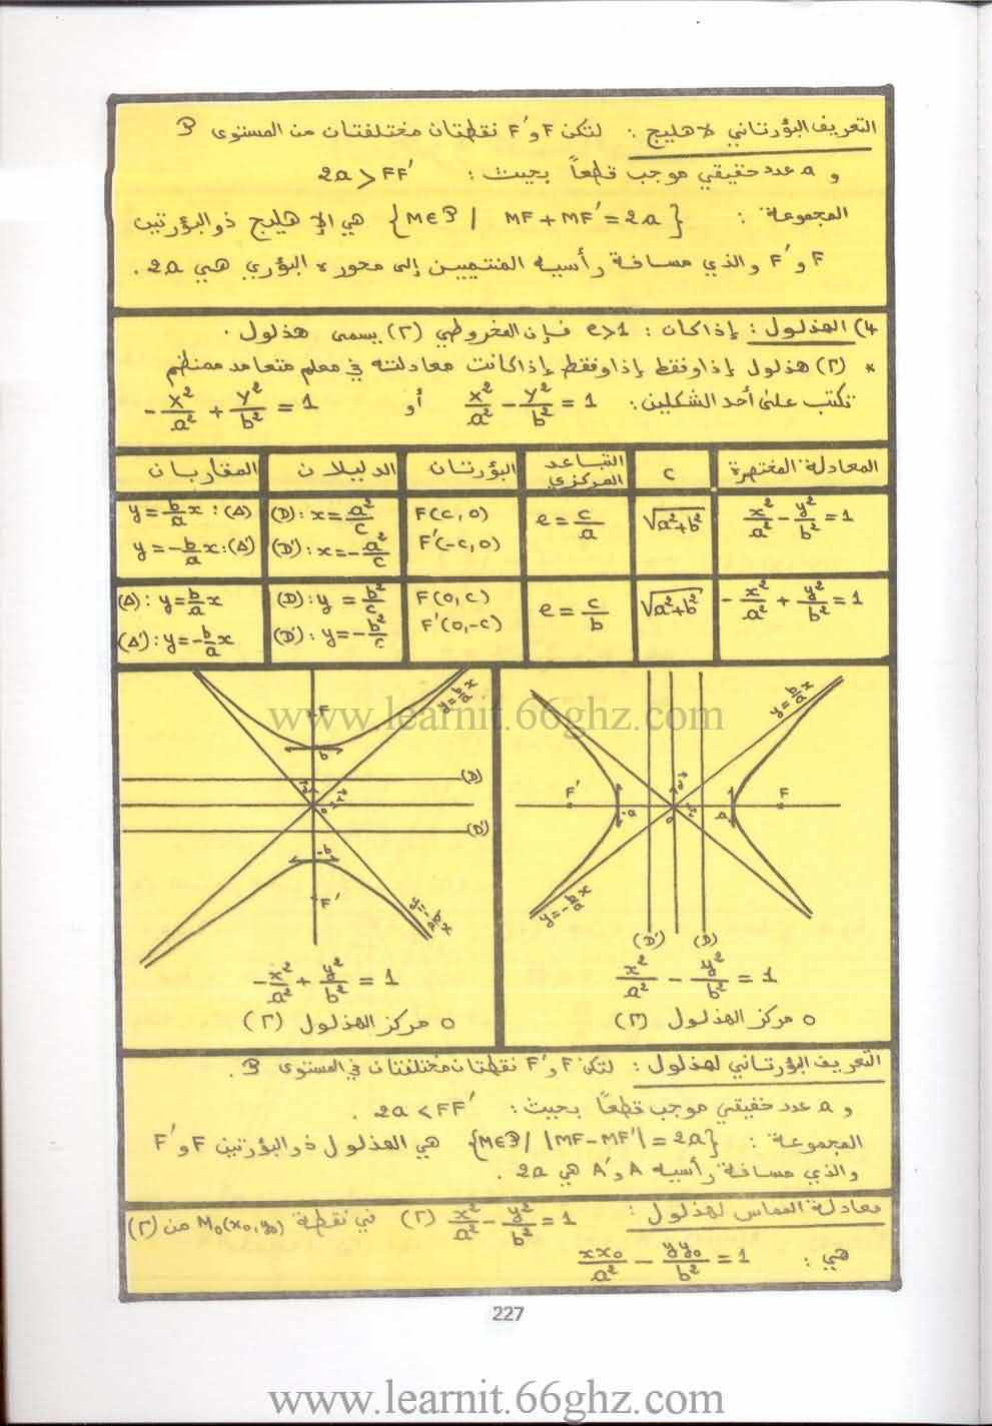 التعريف البؤرتاني لإهليج : لتكن F و F' نقطتان مختلفتان من المستوى P
و a عدد حقيقي موجب قطعاً بحيث : 2a > FF'
المجموعة : {M∈P / MF + MF' = 2a} هي الإهليج ذو البؤرتين
F و F' والذي مسافة رأسيه المنتميين إلى محوره البؤري هي 2a .
4) الهذلول : إذا كان : e>1 فإن المخروطي (Γ) يسمى هذلول .
* (Γ) هذلول إذا وفقط إذا وفقط إذا كانت معادلته في معلم متعامد ممنظم
تكتب على أحد الشكلين : x²/a² - y²/b² = 1 أو -x²/a² + y²/b² = 1
المعادلة المختصرة c التباعد المركزي البؤرتان الدليلان المقاربان
x²/a² - y²/b² = 1 √a²+b² e = c/a F(c,0) (D): x = a²/c (Δ): y = b/a x
F'(-c,0) (D'): x = -a²/c (Δ'): y = -b/a x
-x²/a² + y²/b² = 1 √a²+b² e = c/b F(0,c) (D): y = b²/c (Δ): y = b/a x
F'(0,-c) (D'): y = -b²/c (Δ'): y = -b/a x
y = b/a x
F' F
o
y = -b/a x
(D') (D)
x²/a² - y²/b² = 1
o مركز الهذلول (Γ)
F
y = b/a x
b
(D)
o
(D')
-b
F'
y = -b/a x
-x²/a² + y²/b² = 1
o مركز الهذلول (Γ)
التعريف البؤرتاني لهذلول : لتكن F و F' نقطتان مختلفتان في المستوى P .
و a عدد حقيقي موجب قطعاً بحيث : 2a < FF' .
المجموعة : {M∈P / |MF - MF'| = 2a} هي الهذلول ذو البؤرتين F و F'
والذي مسافة رأسيه A و A' هي 2a .
معادلة المماس لهذلول : x²/a² - y²/b² = 1 (Γ) في نقطة M₀(x₀,y₀) من (Γ)
هي : xx₀/a² - yy₀/b² = 1
227
www.learnit.66ghz.com
www.learnit.66ghz.com